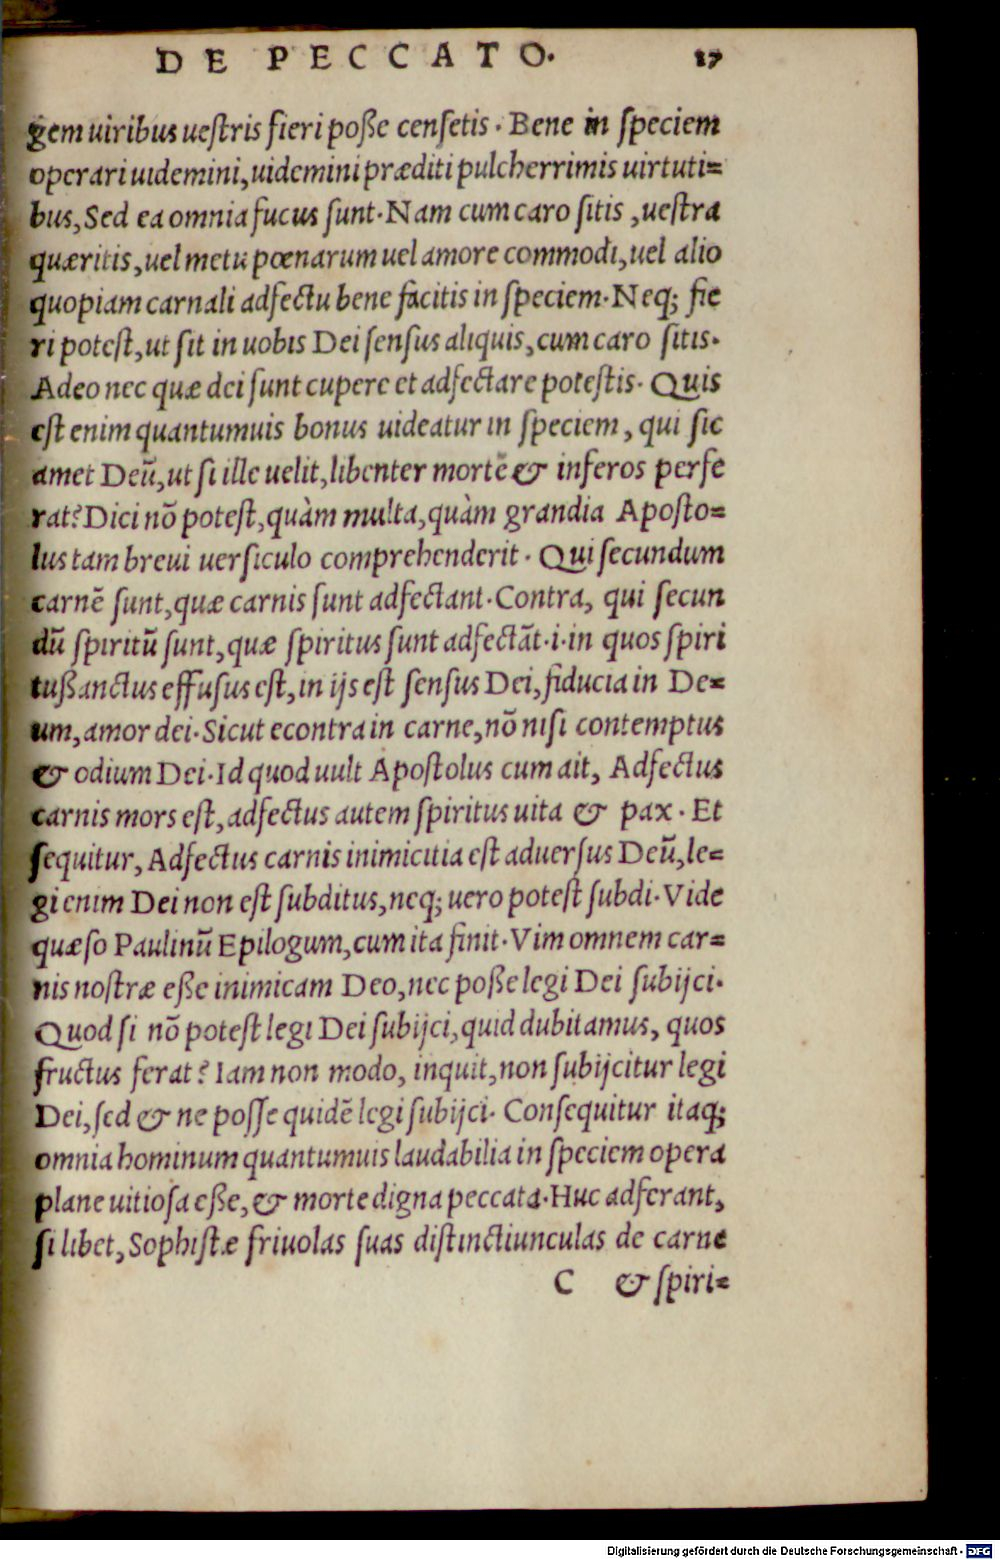 DE PECCATO. 17
gem uiribus ueſtris fieri poße cenſetis. Bene in ſpeciem
operari uidemini, uidemini præditi pulcherrimis uirtuti=
bus, Sed ea omnia fucus ſunt. Nam cum caro ſitis, ueſtra
quæritis, uel metu pœnarum uel amore commodi, uel alio
quopiam carnali adfectu bene facitis in ſpeciem. Neq; fie
ri poteſt, ut ſit in uobis Dei ſenſus aliquis, cum caro ſitis.
Adeo nec quæ dei ſunt cupere et adfectare poteſtis. Quis
eſt enim quantumuis bonus uideatur in ſpeciem, qui ſic
amet Deũ, ut ſi ille uelit, libenter mortẽ & inferos perfe
rat? Dici nõ poteſt, quàm multa, quàm grandia Apoſto=
lus tam breui uerſiculo comprehenderit. Qui ſecundum
carnẽ ſunt, quæ carnis ſunt adfectant. Contra, qui ſecun
dũ ſpiritũ ſunt, quæ ſpiritus ſunt adfectãt. i. in quos ſpiri
tußanctus effuſus eſt, in ijs eſt ſenſus Dei, fiducia in De=
um, amor dei. Sicut econtra in carne, nõ niſi contemptus
& odium Dei. Id quod uult Apoſtolus cum ait, Adfectus
carnis mors eſt, adfectus autem ſpiritus uita & pax. Et
ſequitur, Adfectus carnis inimicitia eſt aduerſus Deũ, le=
gi enim Dei non eſt ſubditus, neq; uero poteſt ſubdi. Vide
quæſo Paulinũ Epilogum, cum ita finit. Vim omnem car=
nis noſtræ eße inimicam Deo, nec poße legi Dei ſubijci.
Quod ſi nõ poteſt legi Dei ſubijci, quid dubitamus, quos
fructus ferat? Iam non modo, inquit, non ſubijcitur legi
Dei, ſed & ne poſſe quidẽ legi ſubijci. Conſequitur itaq;
omnia hominum quantumuis laudabilia in ſpeciem opera
plane uitioſa eße, & morte digna peccata. Huc adferant,
ſi libet, Sophiſtæ friuolas ſuas diſtinctiunculas de carne
C & ſpiri=
Digitalisierung gefördert durch die Deutsche Forschungsgemeinschaft - DFG